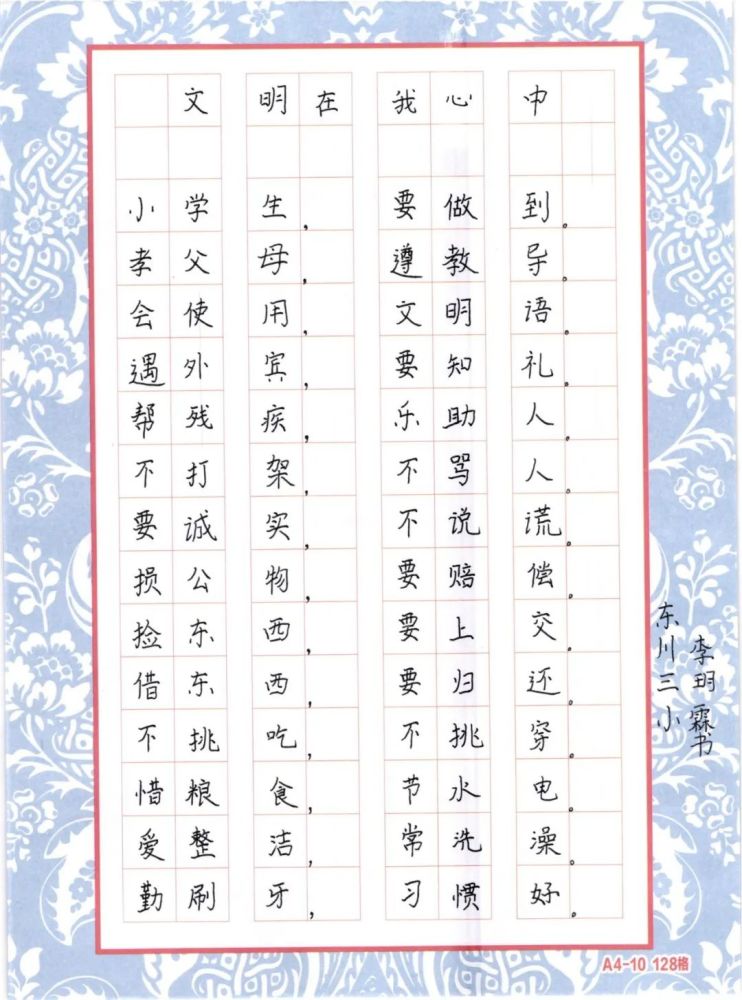 文明在我心中
小学生，要做到。
孝父母，遵教导。
会使用，文明语。
遇外宾，要知礼。
帮残疾，乐助人。
不打架，不骂人。
要诚实，不说谎。
损公物，要赔偿。
捡东西，要上交。
借东西，要归还。
不挑吃，不挑穿。
惜粮食，节水电。
爱整洁，常洗澡。
勤刷牙，习惯好。
东川三小
李玥霖书
A4-10 128格